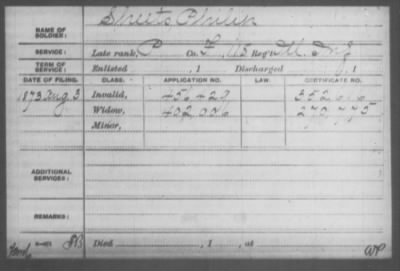 NAME OF SOLDIER: Sheets, Philip
SERVICE: Late rank, P Co. F, 63 Reg't Ill. Inf
TERM OF SERVICE: Enlisted , 1 Discharged , 1
DATE OF FILING. CLASS. APPLICATION NO. LAW. CERTIFICATE NO.
Aug. 3 Invalid, 456429
Widow, 402,006 270,775
Minor,
ADDITIONAL SERVICES:
REMARKS:
Died , 1 , at